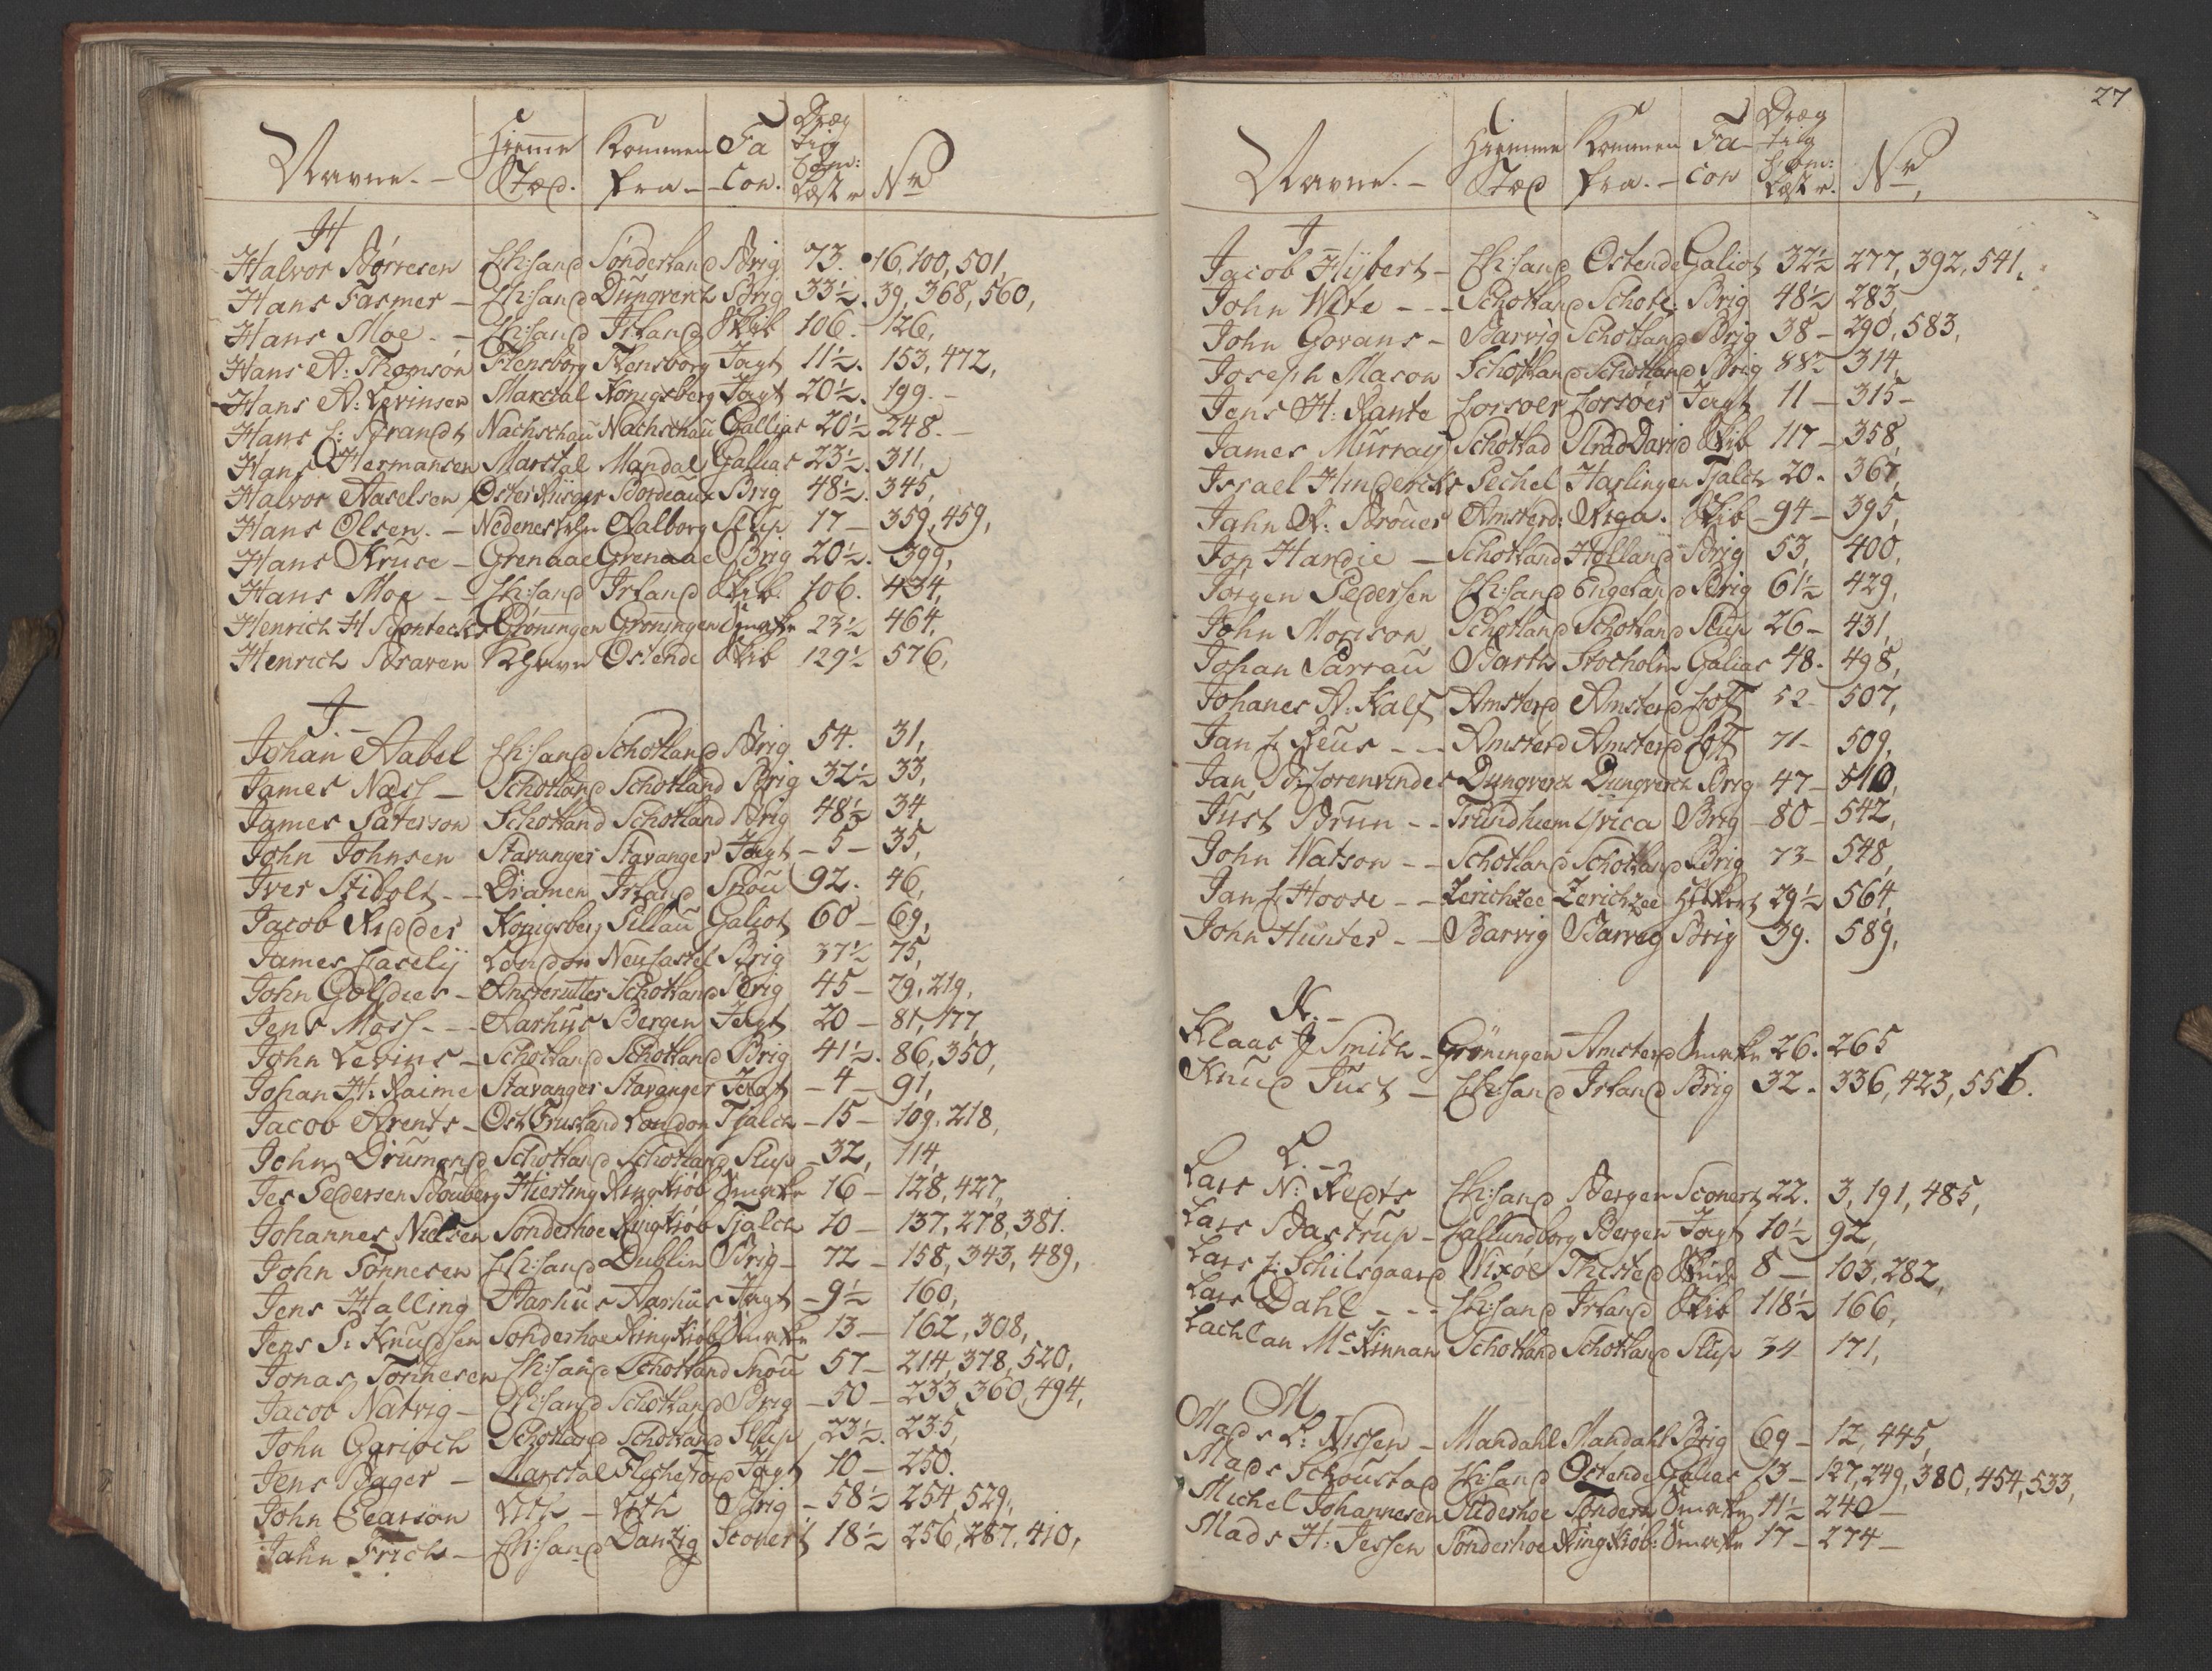 Navne. - Hiemme Stæd. Kommen fra - Fa con. Dræg tig Com: Læster No
H
Halvor Børresen Ch:sand Sönderland Brig 73. 16, 100, 501,
Hans Fasmer - Ch:sand Dünqverch Brig 33½. 39, 368, 560,
Hans Moe - Ch:sand Irland Skib 106. - 126,
Hans A: Thomson Flensborg Flensborg Jagt 11½. 153, 472,
Hans A: Levinsen Marstal Konigsberg Jagt 20½. 199. -
Hans C: Brandt Nachschau Nachschau Gallias 20½ 248. -
Hans Hermansen Marstal Mandal Galias 23½. 311,
Halvor Axelsen Oster Riisøer Bordeaux Brig 48½. 345,
Hans Olsen. - Nedenes Aalborg Slup 17 - 359, 459,
Hans Kruse - Grenaae Grenaae Brig 20½. 399,
Hans Moe - Ch:sand Irland Skib 106. 434,
Henrich H Bonteckr Gröningen Groningen Smakke 23½ 464,
Henrich Braren Khavn Ostende Skib 129½ 576,
I. -
Johan Aabel Ch:sand Schotland Brig 54. 31,
James Næss - Schotland Schotland Brig 32½ 33,
James Paterson Schotland Schotland Brig 48½ 34,
John Johnsen Stavanger Stavanger Jagt - 5 - 35,
Iver Stibolt - - Dramen Irland Snou 92. 46,
Jacob Ridder Konigsberg Pillau Galiot 60 - 69,
James Caselij London Neucastel Brig 37½ 75,
John Goldies - Ansterutter Schotland Brig 45 - 79, 219,
Jens Moss - - Aarhus Bergen Jagt 20 - 81, 177,
John Levins - Schotland Schotland Brig 41½. 86, 350,
Johan H: Raime Stavanger Stavanger Jagt - 4 - 91,
Jacob Arents - Ost Frusland London Tjalch - 15 - 109, 218,
John Drumond Schotland Schotland Slup - 32, 114,
Jes Pedersen Bouberg Hierting Ringkiøb Smakke 16 - 128, 427,
Johannes Nielsen Sonderhoe Ringkiøb Tjalch 10 - 137, 278, 381.
John Tonnesen Ch:sand Dublin Brig - 72 - 158, 343, 489,
Jens Halling Aarhus Aarhus Jagt - 9½ 160,
Jens S: Knudsen Sonderhoe Ringkiøb Smakke 13 - 162, 308,
Jonas Tonnesen Ch:sand Schotland Snou 57 - 214, 378, 520,
Jacob Natvig - Ch:sand Schotland Brig - 50 - 233, 360, 494,
John Garioch Schotland Schotland Slup 23½. 235,
Jens Bager - Marstal Fleche Jagt 10 - 250.
John Pearson Leth - Leth Brig - 58½ 254, 529,
Jahn Frich - Ch:sand Danzig Sconert 18½ 256, 287, 410,
27
Navne. - Hiemme Stæd Kommen fra. - Fa- con Dræg tilg Com: Læster. No,
I -
Jacob Hybert - Ch:sand Ostende Galiot 32½ 277, 392, 541,
John Wite - - - Schotland Schotl: Brig 48½ 283,
John Govans - Barvig Schotland Brig 38 - 290, 583,
Joseph Mason Schotland Schotland Brig 88½ 314,
Jens H: Rante Corsoer Corsoer Jagt 11 - 315 -
James Murray Schotlad Strad David Skib 117 - 358,
Israel Hinderchs Pechel Harlingen Tjalch 20. 361,
Jahn R: Brouer Amsterd: Riga. Skib - 94 - 395,
Jon Hardie - Schotland Holland Brig 53, 400,
Jorgen Pedersen Ch:sand Engeland Brig 61½ 429,
John Morison Schotland Schotland Slup 26 - 431,
Johan Parrau Barth Stocholm Galias 48. 498,
Johanes A: Kalf Amsterd Amsterd Coff 52 - 507,
Jan J: Reus - - Amsterd Amsterd Coff 71 - 509,
Jan B: Corenvinder Dunqverch Dunqverch Brig 47 - 510,
Just Brun - - Trundhiem Yrica Brig - 80 - 542,
John Watson - - Schotland Schotland Brig 73 - 548,
Jan J: Hoose - - Zerichzee Zerichzee Huckert 29½ 564,
John Hunter - - Barvig Barvig Brig 39. 589,
K. -
Klaas J Smith - Gröningen Amsterd Smakke 26. 265
Knud Just - Ch:sand Irland Brig 32. 336, 423, 556.
L. -
Lars N: Redts Ch:sand Bergen Sconert 22. 3, 191, 485,
Lars Bastrup - Callundborg Bergen Jagt 10½ 92,
Lars C: Schilsgaard Vixöe Thisted Skude 8 - 103, 282,
Lars Dahl - - - Ch:sand Irland Skib 118½ 166,
Lachlan Mc Kinnan Schotland Schotland Slup 34 171,
M
Mads L: Nissen - Mandahl Mandahl Brig 69 - 12, 445,
Mads Schoustad Ch:sand Ostende Galias 13 - 127, 249, 380, 454, 533,
Michel Johannesen Süderhoe Tondern Smakke 11½ 240 -
Mads H: Jessen Sönderhoe Ringkiöb: Smakke 17 - 274 -